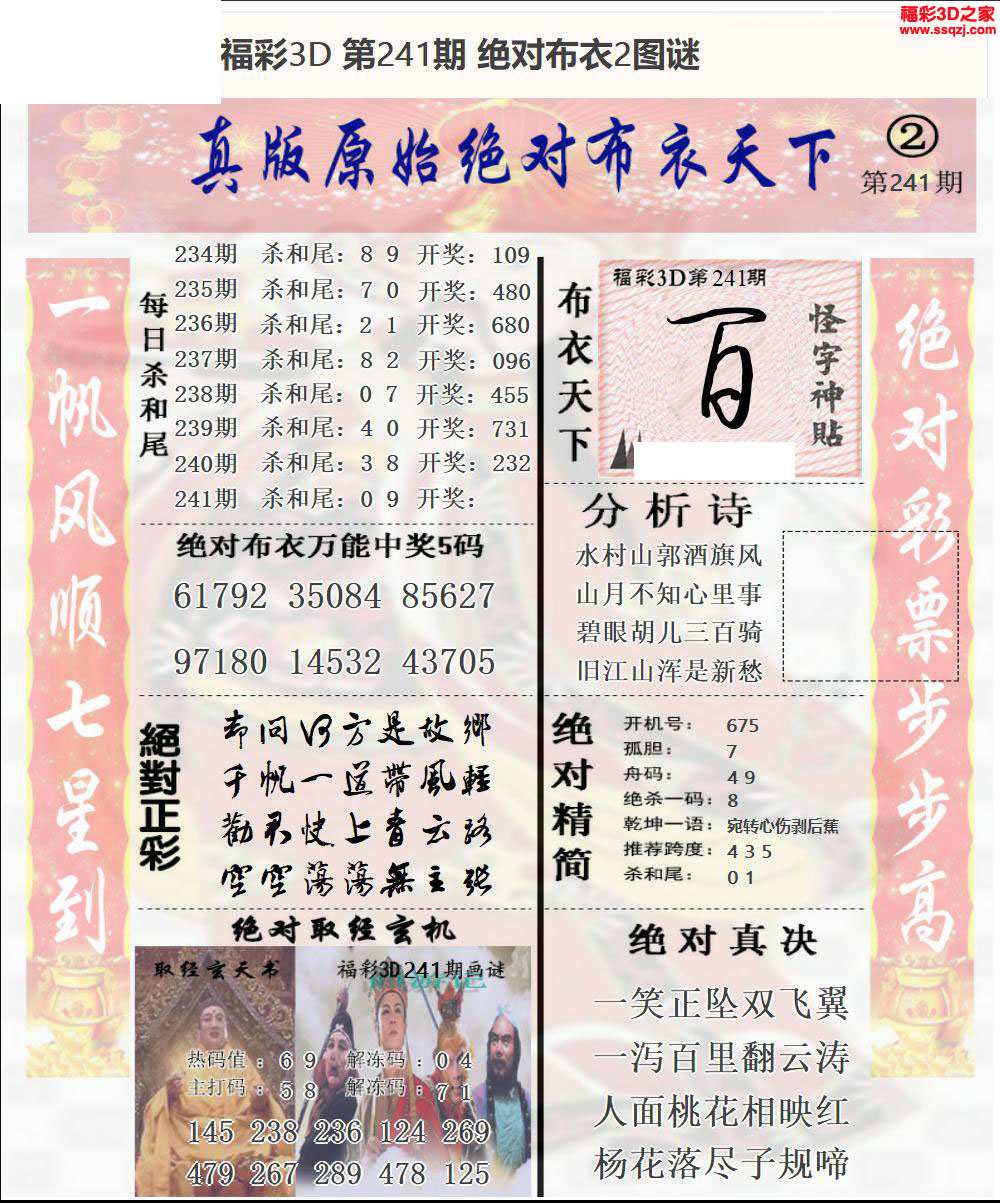 福彩3D之家
www.ssqzj.com
福彩3D 第241期 绝对布衣2图谜
真版原始绝对布衣天下
②
第241期
一帆风顺七星到
每日杀和尾
234期 杀和尾：8 9 开奖：109
235期 杀和尾：7 0 开奖：480
236期 杀和尾：2 1 开奖：680
237期 杀和尾：8 2 开奖：096
238期 杀和尾：0 7 开奖：455
239期 杀和尾：4 0 开奖：731
240期 杀和尾：3 8 开奖：232
241期 杀和尾：0 9 开奖：
绝对布衣万能中奖5码
61792 35084 85627
97180 14532 43705
絕對正彩
却问何方是故鄉
千帆一道帶風輕
勸君快上青云路
空空蕩蕩無主张
绝对取经玄机
取经玄天书
福彩3D241期画谜
热码值：6 9 解冻码：0 4
主打码：5 8 解冻码：7 1
145 238 236 124 269
479 267 289 478 125
布衣天下
福彩3D第241期
百
怪字神貼
分析诗
水村山郭酒旗风
山月不知心里事
碧眼胡儿三百骑
旧江山浑是新愁
绝对精简
开机号：675
孤胆：7
舟码：4 9
绝杀一码：8
乾坤一语：宛转心伤剥后蕉
推荐跨度：4 3 5
杀和尾：0 1
绝对真决
一笑正坠双飞翼
一泻百里翻云涛
人面桃花相映红
杨花落尽子规啼
绝对彩票步步高